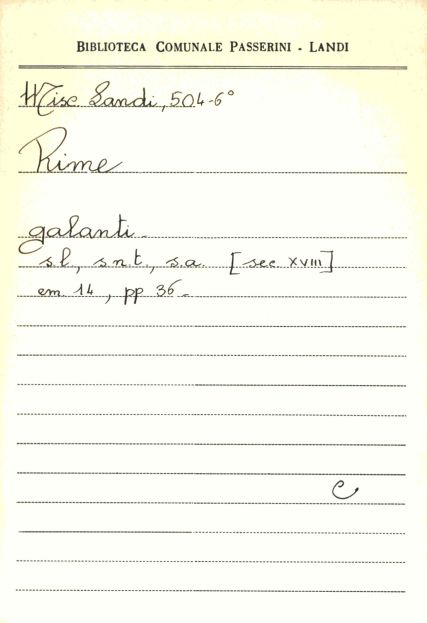 BIBLIOTECA COMUNALE PASSERINI - LANDI
Misc Landi, 504-6°
Rime
galanti.
s.l., s.n.t., s.a. [sec XVIII]
cm. 14, pp 36.
C